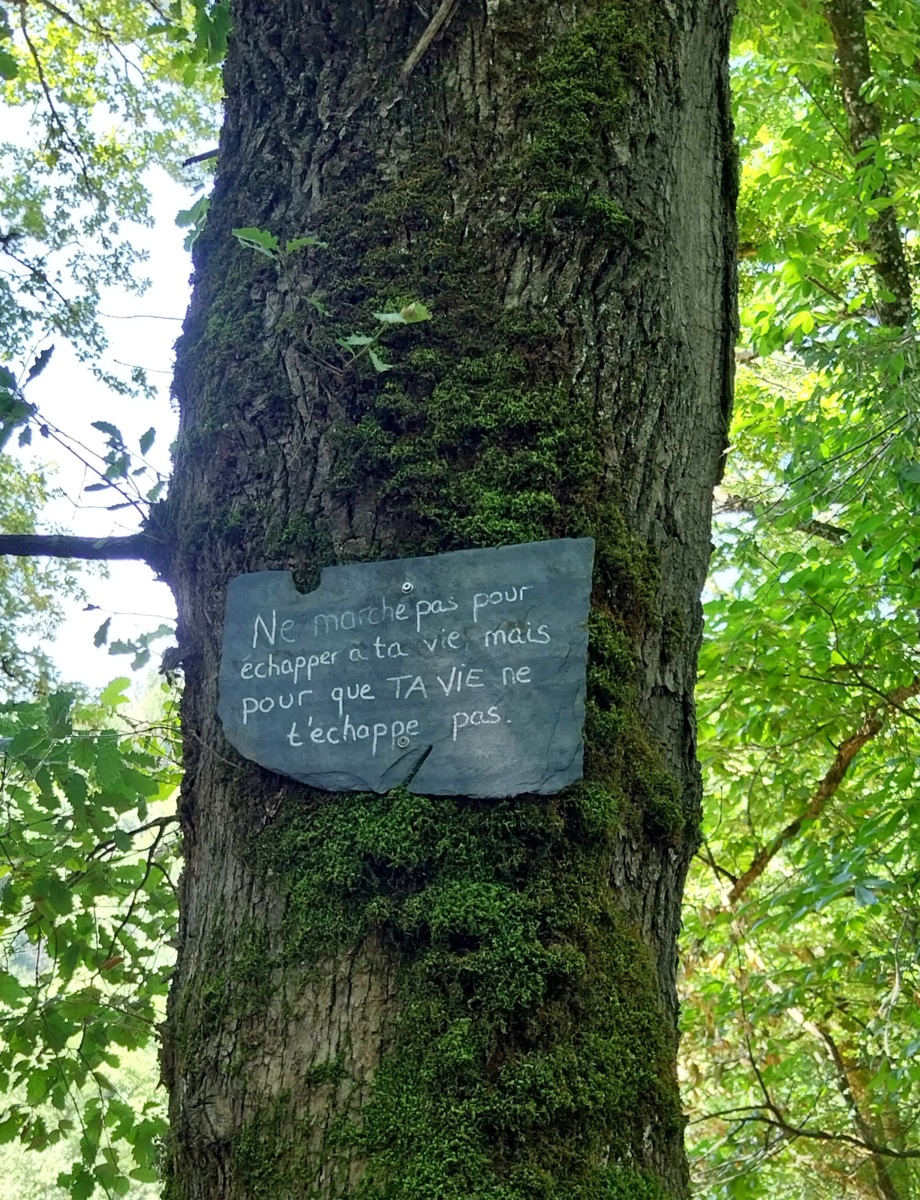 Ne marche pas pour
échapper a ta vie, mais
pour que TA VIE ne
t'échappe pas.